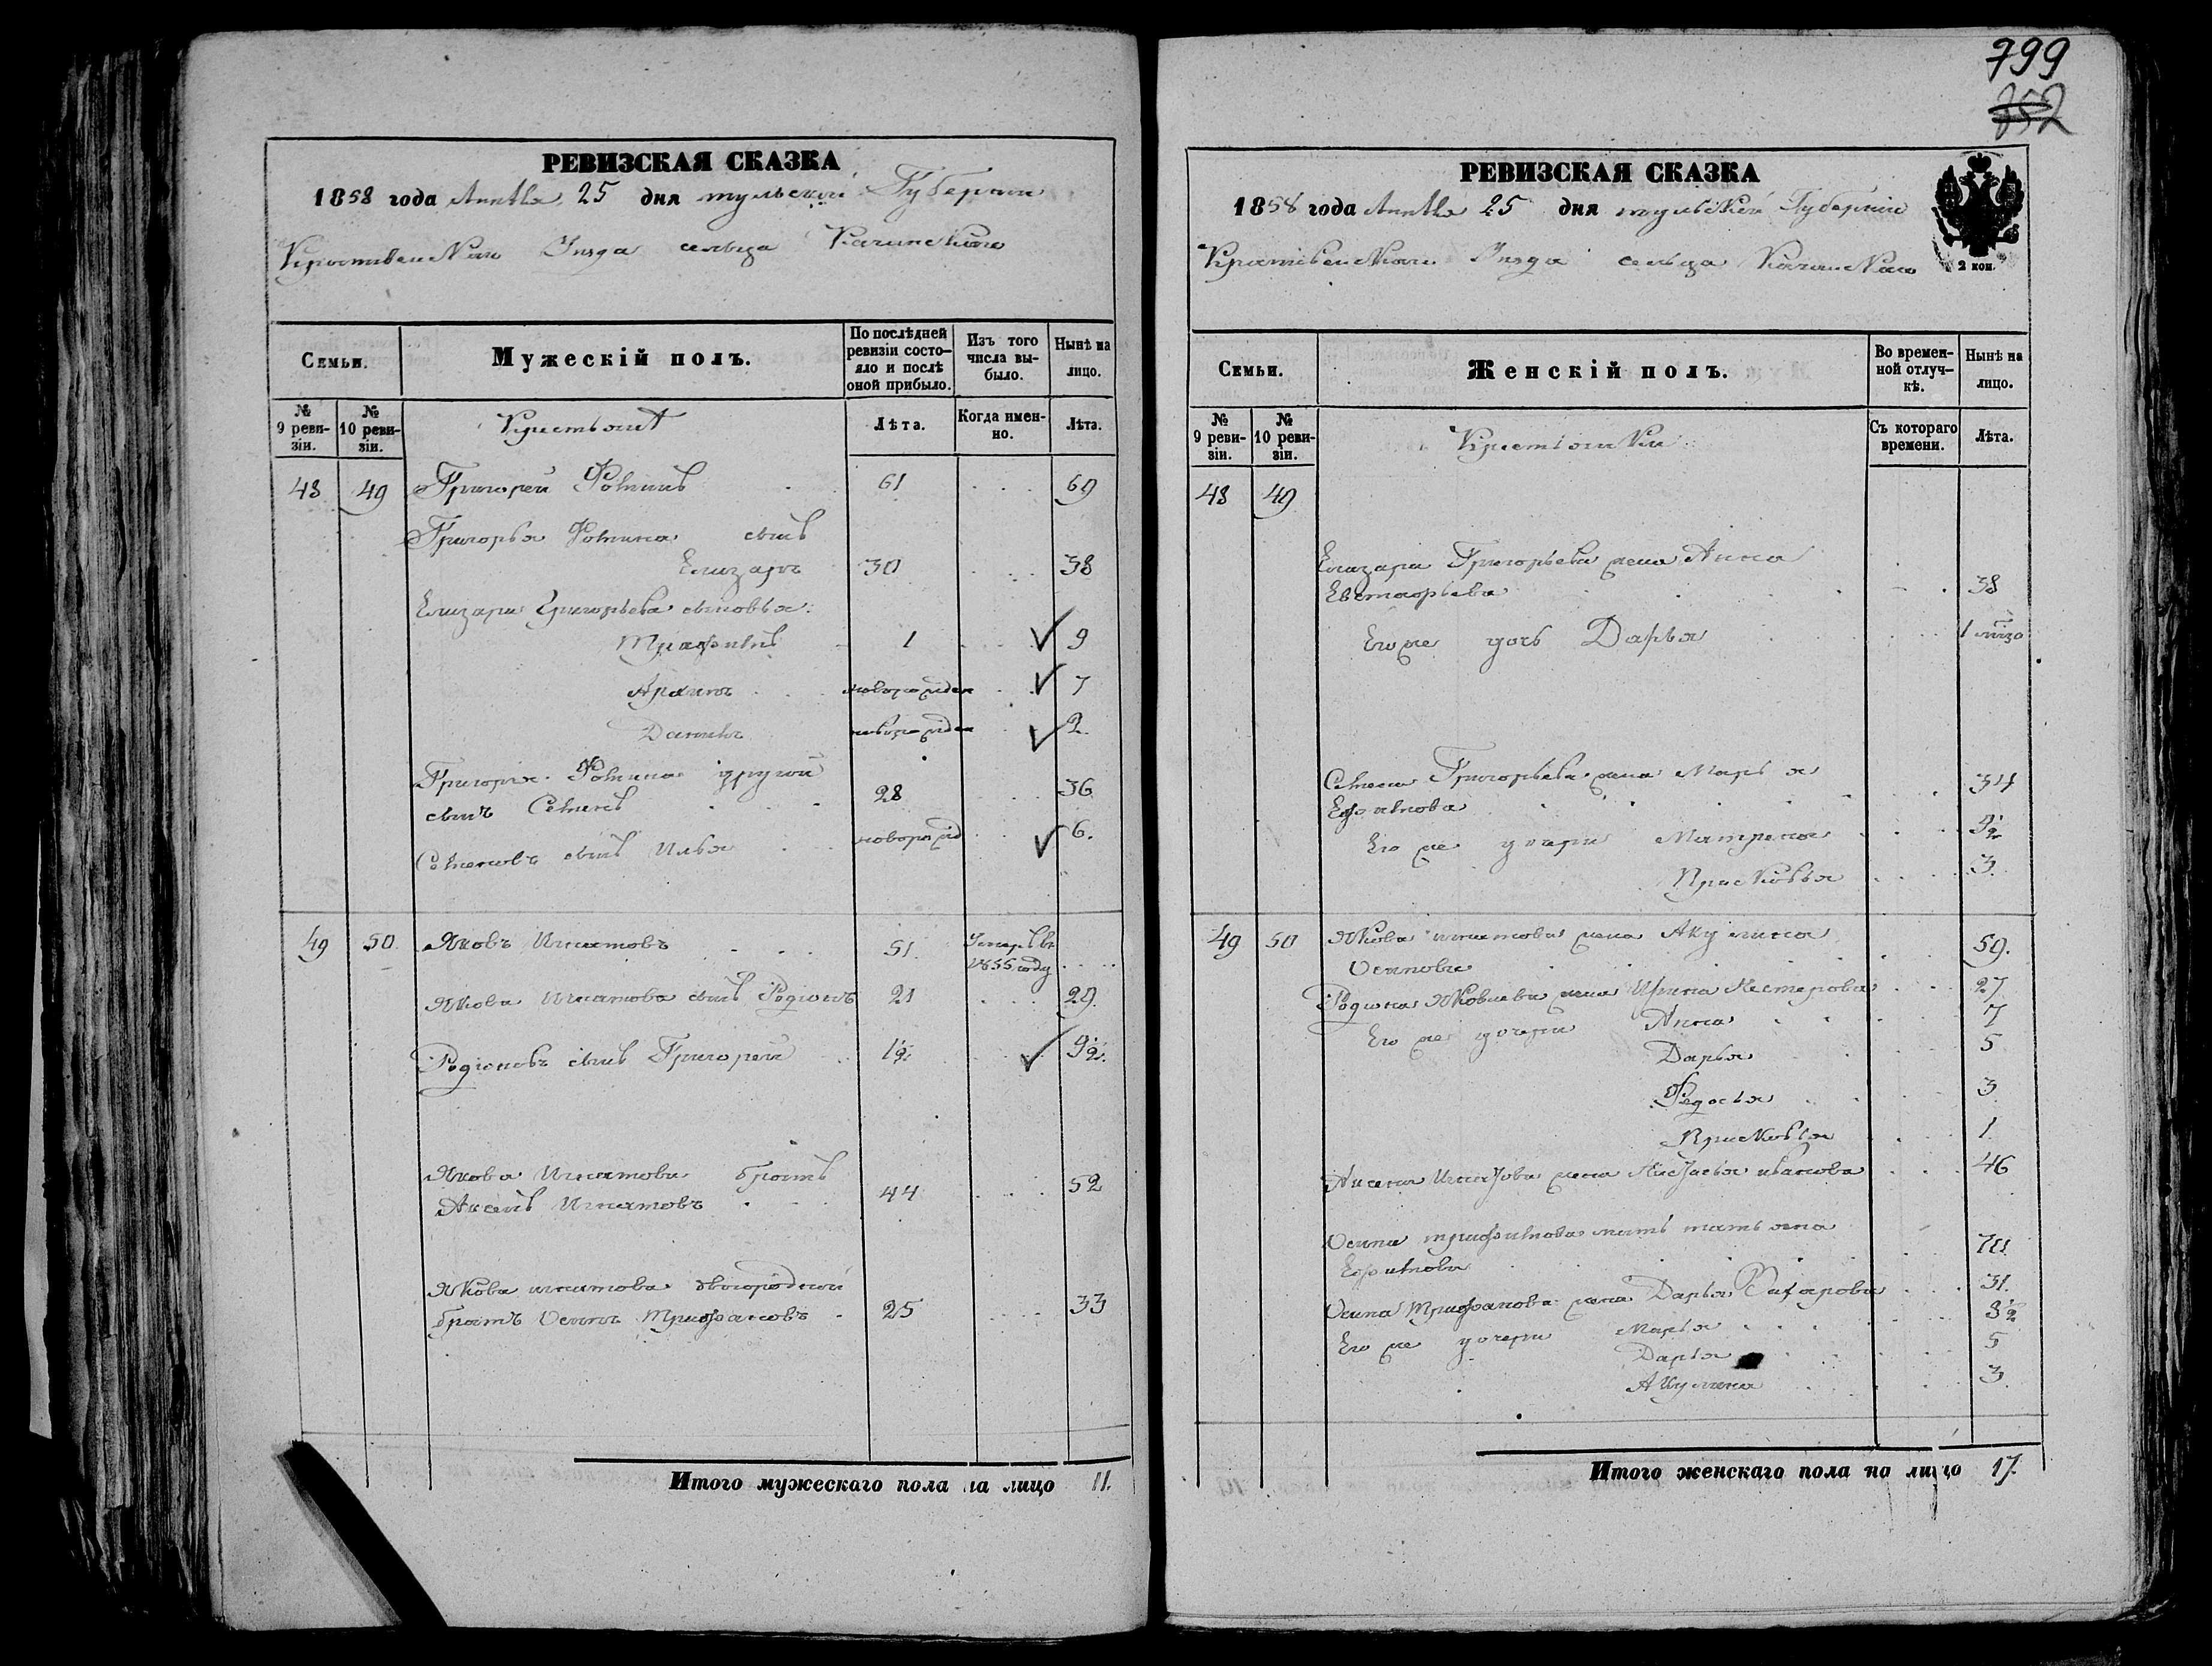 799
352
РЕВИЗСКАЯ СКАЗКА
1858 года Апреля 25 дня тульской Губернии
Крапивенскаго Уезда сельца
Семьи.
Мужескій полъ.
По послѣдней ревизіи состо-
яло и послѣ
оной прибыло.
Изъ того
числа вы-
было.
Нынѣ на
лицо.
№
9 реви-
зіи.
№
10 реви-
зіи.
Крестьяне
Лѣта.
Когда имен-
но.
Лѣта.
48 49 Григорей Фоминъ 61 69
Григорья Фомина сынъ
Елизаръ 30 38
Елизара Григорьева сыновья:
Трифонъ 1 9
новорожден 7
Данила новорожден 2
Григорья Фомина другой
сынъ Семенъ 28 36
Семеновъ сынъ Илья новорожд 6.
49 50 Яковъ Игнатовъ 51. Умеръ въ
1855 году
Якова Игнатова сынъ Родіонъ 21 29.
Родіоновъ сынъ Григорей 1½ 9½.
Якова Игнатова братъ
Аксенъ Игнатовъ 44 52
Якова игнатова двоюродной
братъ Осипъ Трифановъ 25 33
Итого мужескаго пола на лицо 11.
РЕВИЗСКАЯ СКАЗКА
1858 года Апреля 25 дня тульской Губерніи
Крапивенскаго Уезда сельца
2 коп.
Семьи.
Женскій полъ.
Во времен-
ной отлуч-
кѣ.
Нынѣ на
лицо.
№
9 реви-
зіи.
№
10 реви-
зіи.
Крестьянки
Съ котораго
времени.
Лѣта.
48 49
Елизара Григорьева жена Анна
38
Его же дочь Дарья 1
Семена Григорьева жена Марья
Ефимова 34
Его же дочери Матрена 9½
Прасковья 3.
49 50 Якова игнатова жена Акулина
Осипова 59.
Родіона Яковлева жена Ирина Нестерова 27
Его же дочери Анна 7
Дарья 5
Федосья 3
Прасковья 1.
Аксена Игнатова жена Настасья иванова 46
Осипа трифонова мать татьяна
Ефимова 70.
Осипа Трифанова жена Дарья Захарова 31.
Его же дочери Марья 8½
Дарья 5
Акулина 3.
Итого женскаго пола на лицо 17.